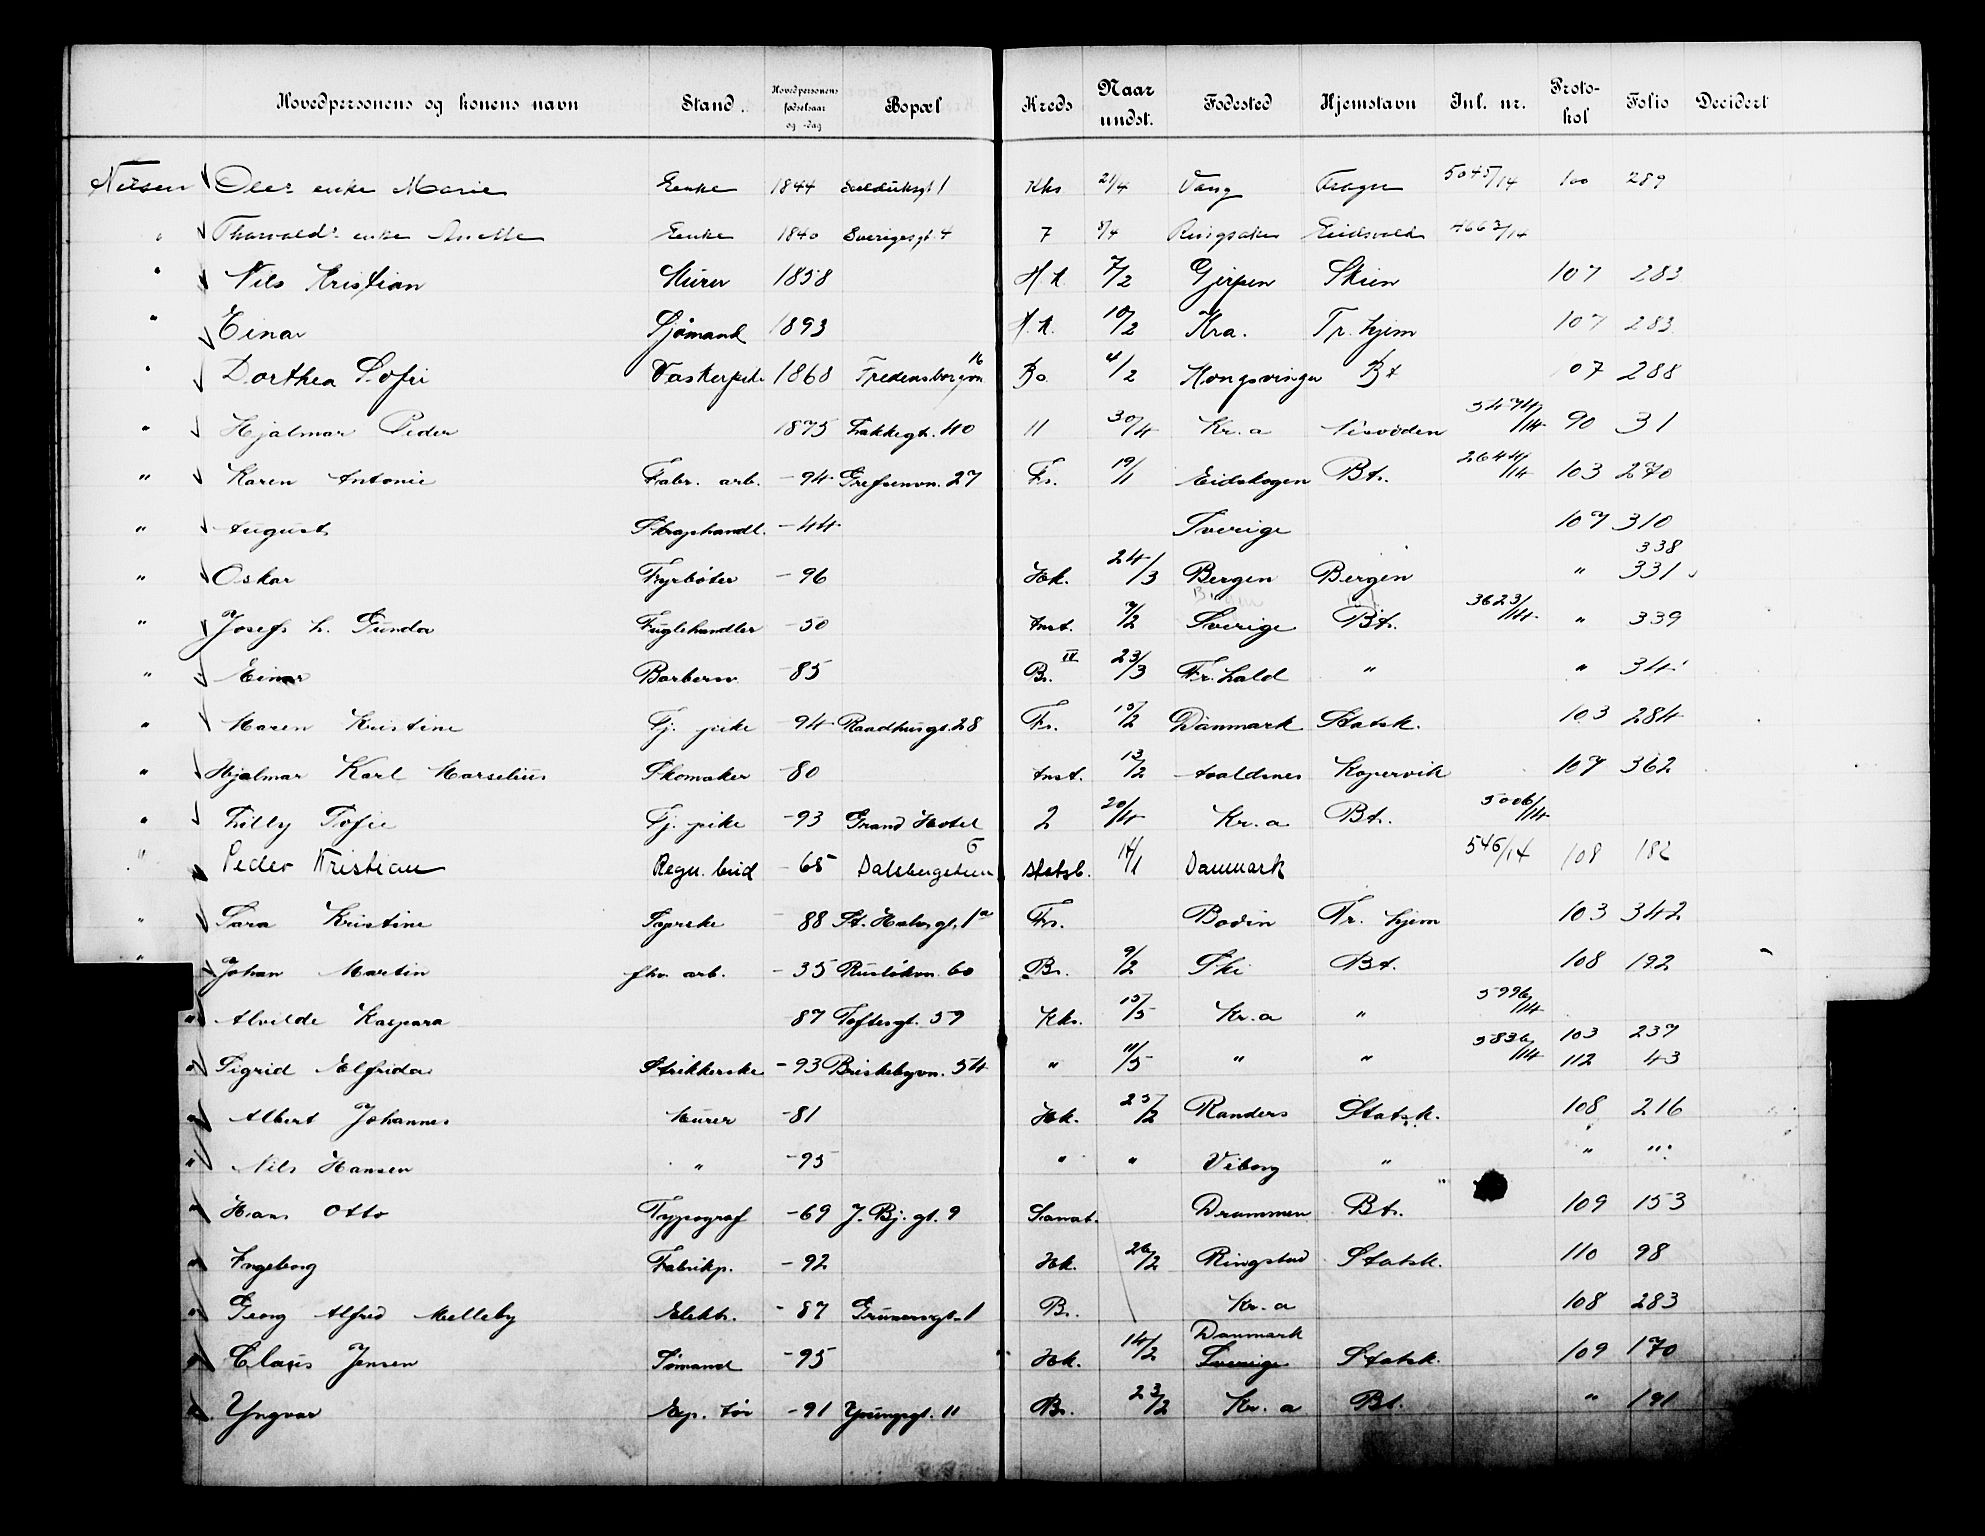 Hovedpersonens og konens navn Stand. Hovedpersonens fødselsaar og -dag Bopæl Kreds Naar undst. Fødested Hjemstavn Jnl. nr. Proto-kol Folio Decidert
Nilsen Oles enke Marie Enke 1844 Kks 21/4 Vang 5045/14 100 289
" Thorvalds enke Enke 1840 Sverigesgt 4 7 8/4 Ringsaker Eidsvold 4662/14
" Nils Kristian Murer 1858 H.k. 7/2 Gjerpen Skien 107 283
" Einar Sjømand 1893 H.k. 10/2 Kra. Tr. hjem 107 283
" Dorthea Sofie Vaskerpike 1868 Fredensborgvn 16 Br. 4/2 Kongsvinger Bt 107 288
" Hjalmar Peder 1875 Lakkegt. 40 11 30/4 Kr.a 5474/14 90 31
" Karen Antonie Fabr. arb. -94 Grefsenvn. 27 Fr. 19/1 Eidskogen Bt. 2644/14 103 270
" August Skraphandl. -44 Sverige 107 310
338
" Oskar Fyrbøter -96 Hk. 24/3 Bergen Bergen " 331
" Josefs h. Gunda Fuglehandler -50 Anst. 7/2 Sverige Bt. 3623/14 " 339
" Einar Barbersv. -85 Br. IV 23/3 Fr.hald " "
" Maren Kristine Tj. pike -94 Raadhusgt. 28 Fr. 15/2 Danmark Statsk. 103 284
" Hjalmar Karl Marselius Skomaker -80 Anst. 13/2 Avaldsnes Kopervik 107 362
" Lilly Sofie Tj. pike -93 Grand Hotel 2 20/4 Kr.a Bt. 5006/14
" Peder Kristian -65 6 Statsb. 14/1 Danmark 546/14 108 182
" Sara Kristine Syerske 88 St. Halvs.gt. 1a Fr. Bodin Tr. hjem 103 342
" Johan Martin fhv. arb. -35 Ruseløkvn. 60 Br. 9/2 Ski Bt. 108 192
" Alvilde Kaspara 87 Toftesgt. 59 Kks. 15/5 Kr.a " 5996/14
" Sigrid Elfrida Strikkerske -93 Briskebyvn. 54 " 11/5 " " 5836/14 103 237
112 43
" Albert Johannes Murer -81 Hk. 25/2 Randers Statsk. 108 216
" Nils Hansen " -95 " " Viborg " " "
" Hans Otto Typograf -69 J. Bj. gt. 9 Sanat. Drammen Bt. 109 153
" Ingeborg Fabrikp. -92 Hk. 26/2 Ringsted Statsk. 110 98
" Georg Alfred Melleby Elektr. -87 Grünersgt. 1 Br. Kr.a 108 283
Danmark
" Claus Jensen Sømand -95 Hk. 14/2 Sverige Statsk. 109 170
" Yngvar -91 Youngsgt. 11 Br. 23/2 Kr.a Bt. " 191